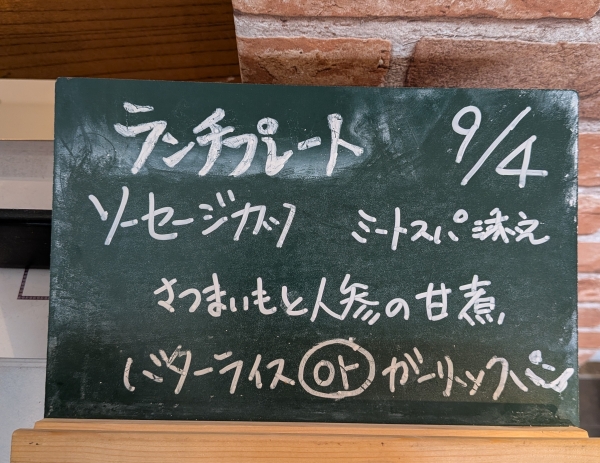 ランチプレート 9/4
ソーセージカツ ミートスパ添え
さつまいもと人参の甘煮
バターライス or ガーリックパン